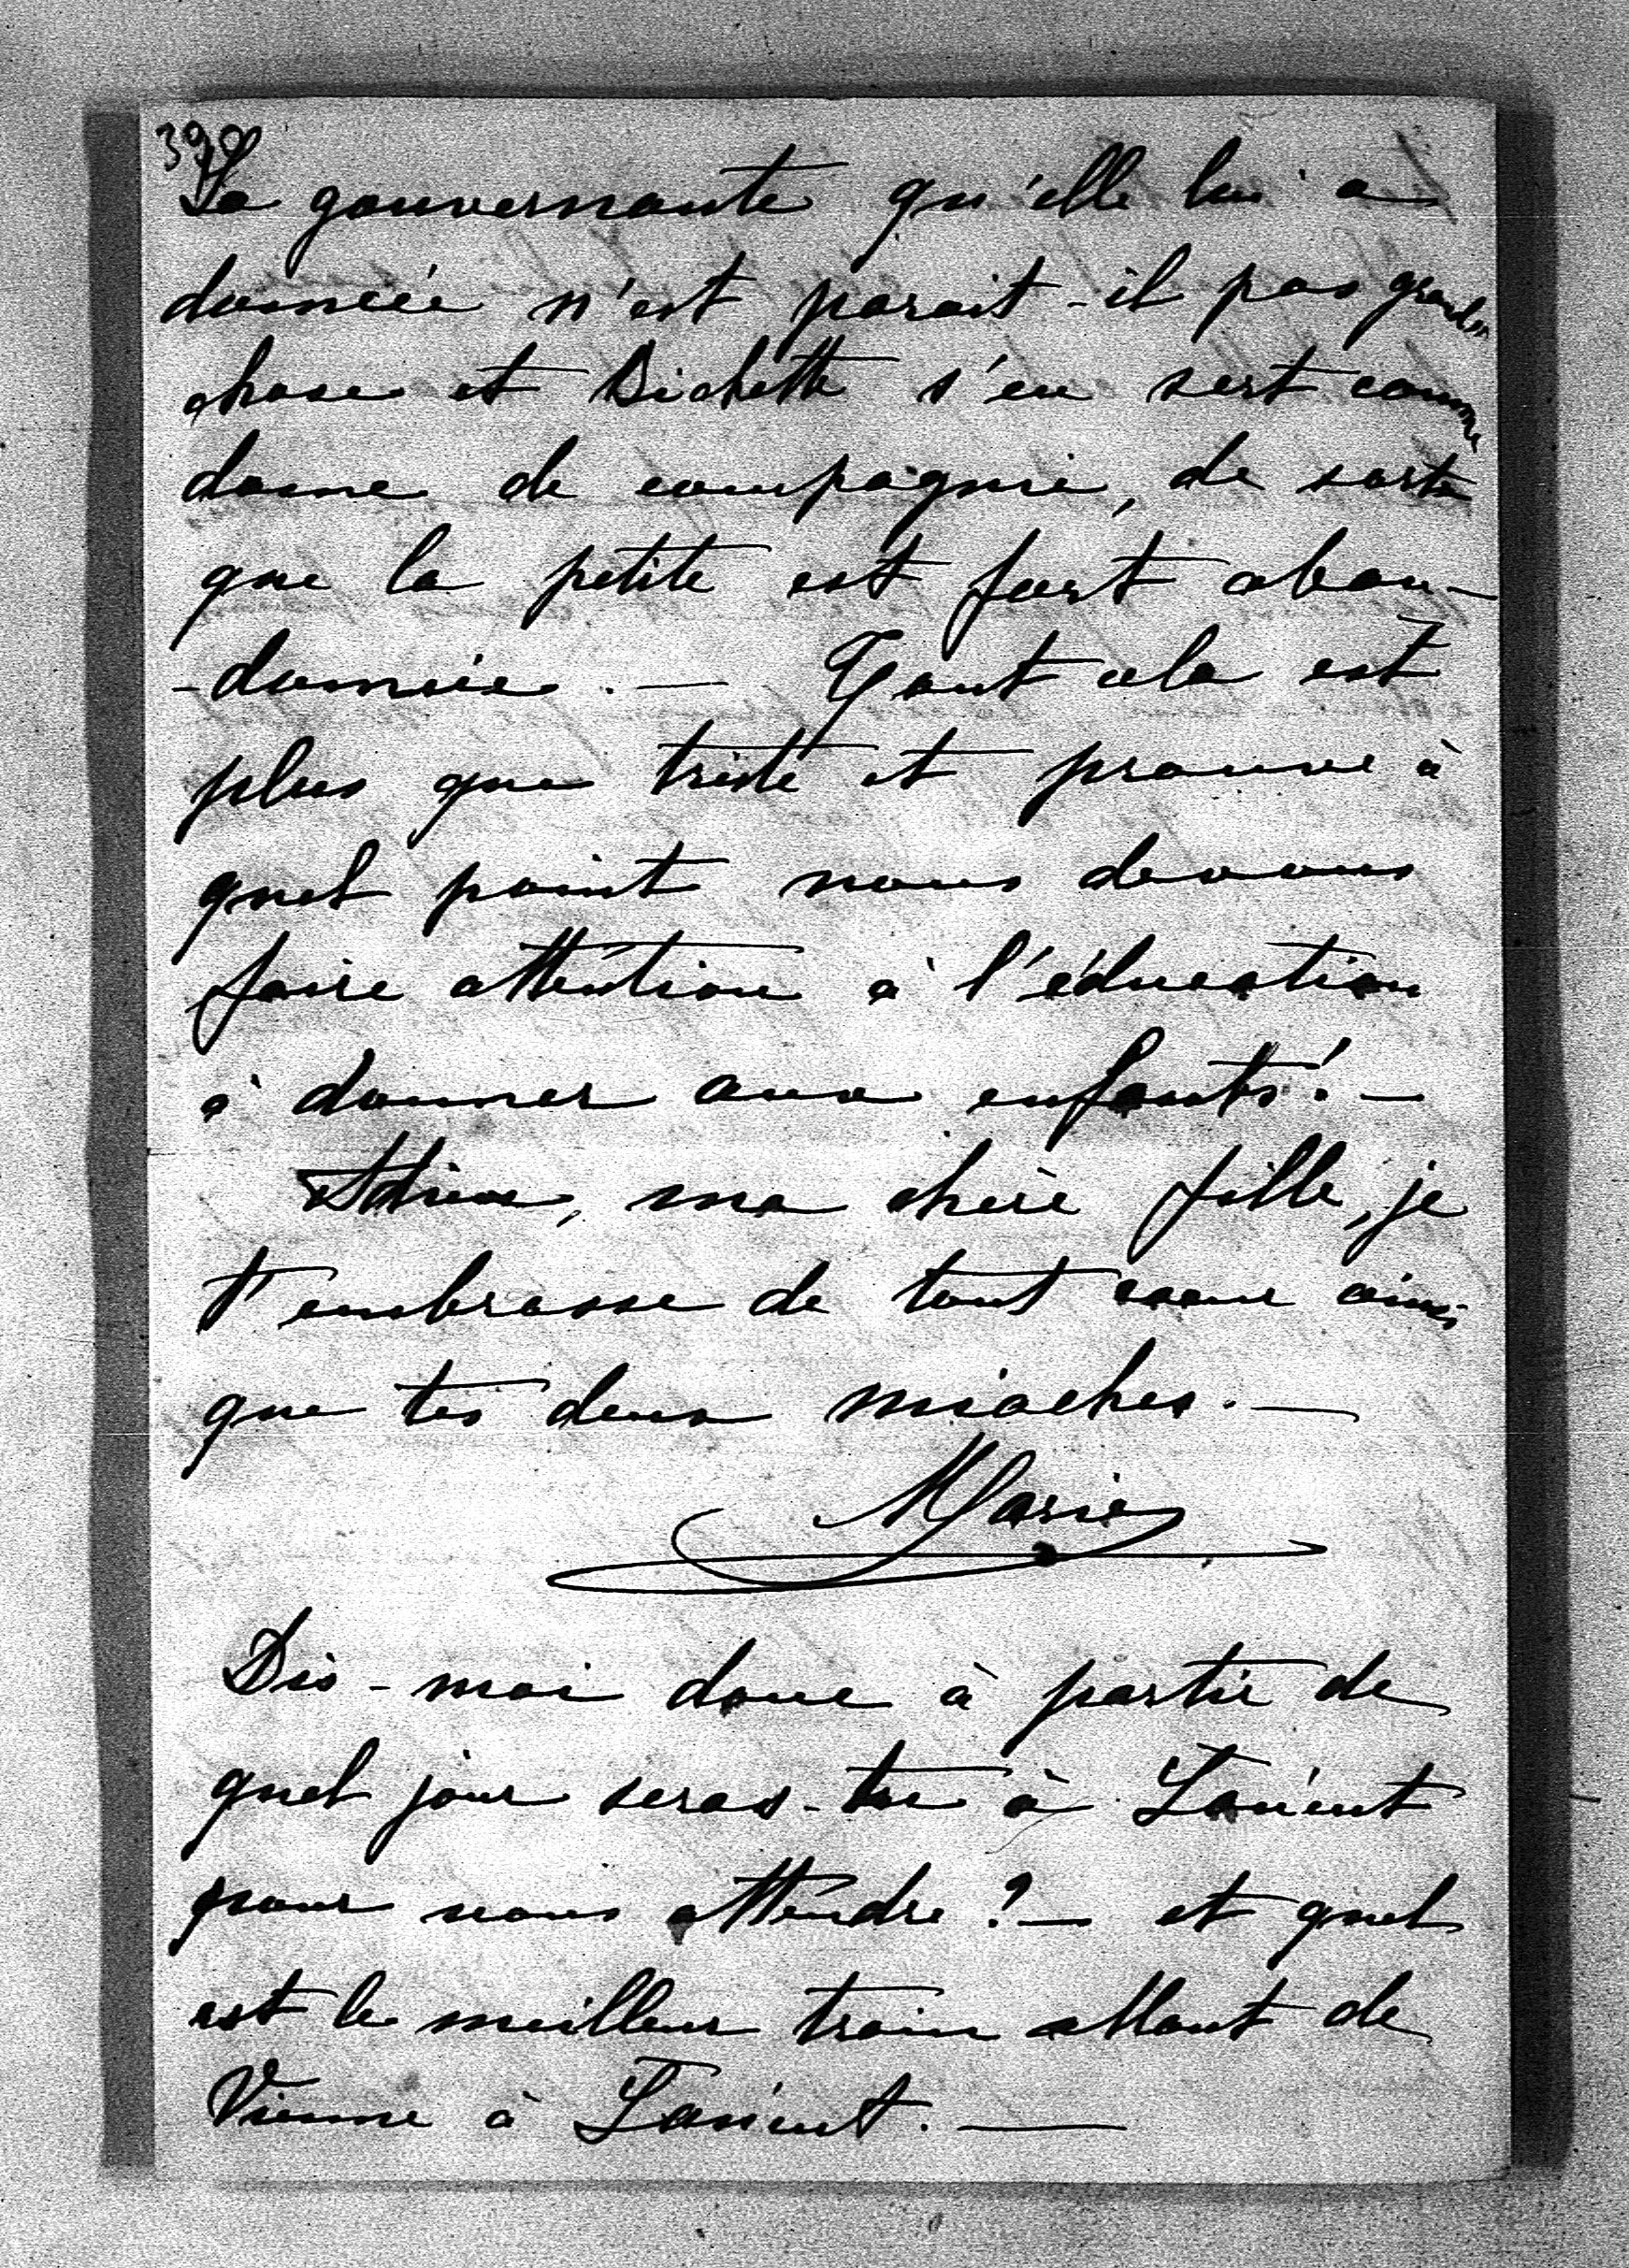 390
La gouvernante qu'elle lui a
donnée n'est parait-il pas grand
chose et Bichette s'en sert comme
dame de compagnie, de sorte
que la petite est fort aban-
-donnée. — Tout cela est
plus que triste et prouve à
quel point nous devons
faire attention à l'éducation
à donner aux enfants! —
Adieu, ma chère fille, je
t'embrasse de tout coeur ainsi
que tes deux mioches. —
Marie
Dis-moi donc à partir de
quel jour seras-tu à Lancut
pour nous attendre? — et quel
est le meilleur train allant de
Vienne à Lancut. —